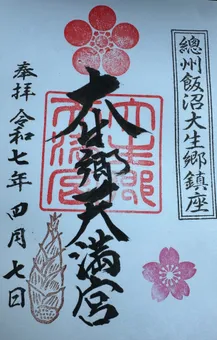 總州飯沼大生郷鎮座
大生郷天満宮
奉拝 令和七年 四月 七日